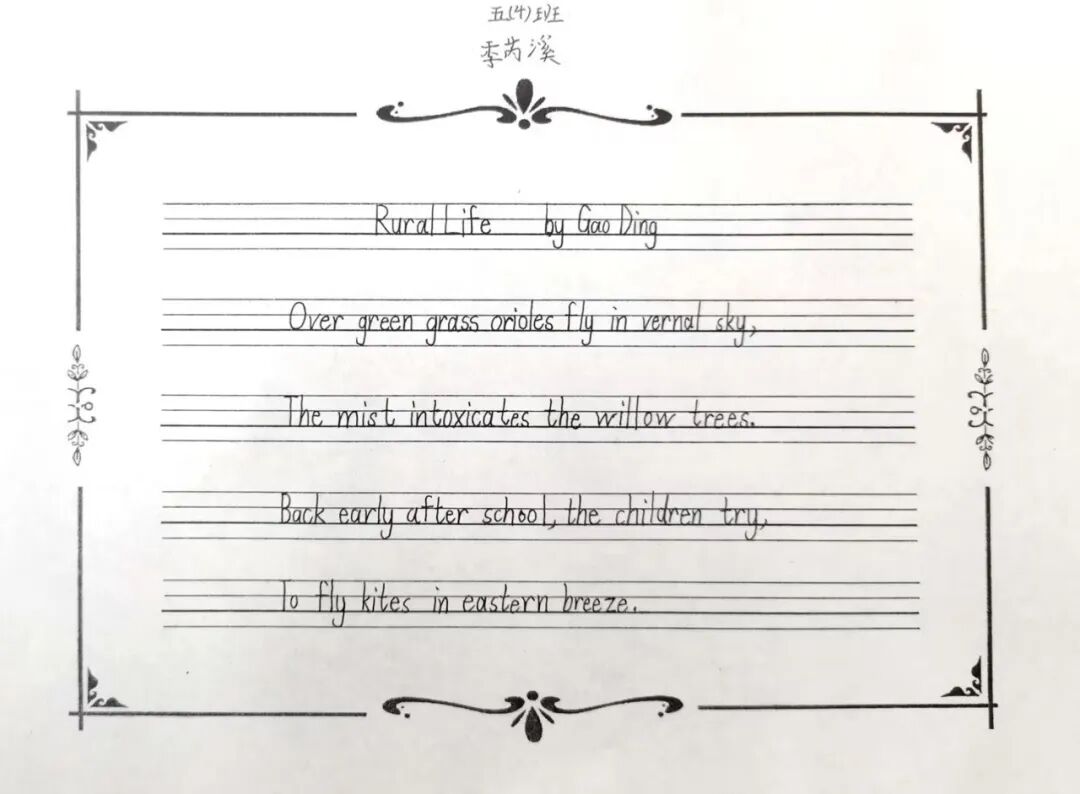 五(4)班
李芮溪
Rural Life by Gao Ding
Over green grass orioles fly in vernal sky,
The mist intoxicates the willow trees.
Back early after school, the children try,
To fly kites in eastern breeze.